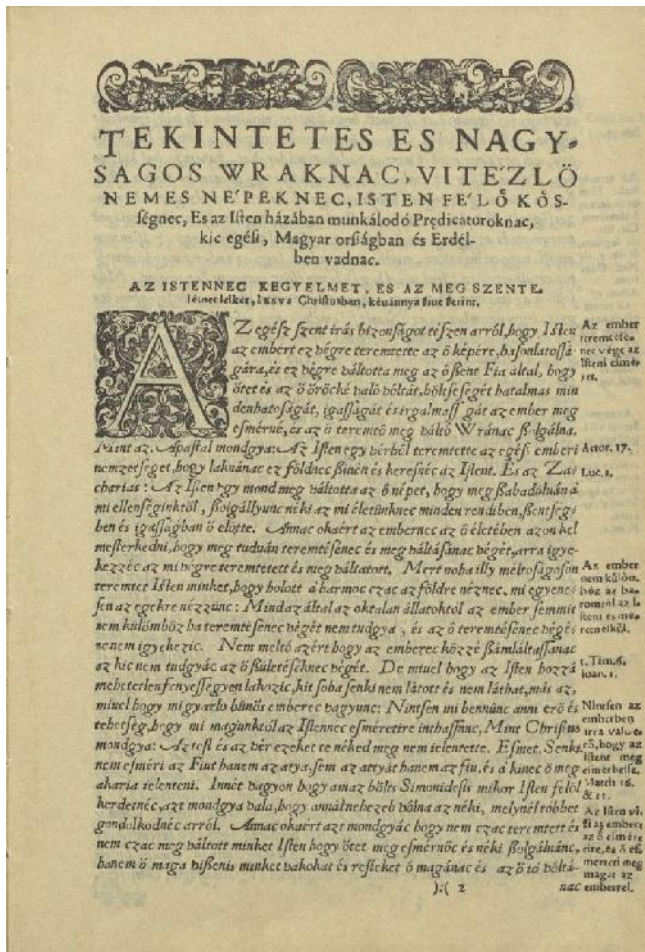 TEKINTETES ES NAGY-
SAGOS WRAKNAC, VITÉZLÖ
NEMES NÉPEKNEC, ISTEN FÉLŐ KÖS-
ségnec, Es az Isten házában munkálodó Prędicatoroknac,
kic egész, Magyar országban és Erdél-
ben vadnac.
AZ ISTENNEC KEGYELMET, ES AZ MEG SZENTE-
Christusban, kéuánnya szerint.
AZ egész szent irás bizonságot tészen arról, hogy Isten
az embert ez végre teremtette az ö képére, hasonlatossá-
gára, és ez végre váltotta meg az ö szent Fia által, hogy
ötet és az ö öröcké való vóltát, böltseségét hatalmas min
denhatoságát, igasságát és irgalmasságát az ember meg
esmérné, és az ö teremtö meg váltó Wránac szolgálna.
Mint az Apastal mondgya: Az Isten egy vérböl teremtette az egész emberi
nemzetséget, hogy laknánac ez földnec szinén és keresnéc az Istent. És az Za-
charias: Az Isten vgy mond meg váltotta az ö népet, hogy meg szabadulván á
mi ellenséginktöl, szolgállyunc néki az mi életünknec minden rendiben, szentség-
ben és igasságban ö elötte. Annac okaért az embernec az ö életében azon kel
mesterkedni, hogy meg tuduán teremtésenec és meg váltásánac végét, arra igye-
kezzéc az mi végre teremtetett és meg váltatott. Mert noha illy meltoságoson
teremtet Isten minket, hogy holott á barmoc czac az földre néznec, mi egyene-
sen az egekre nézzünc: Mind az által az oktalan állatoktol az ember semmit
nem külömböz ha teremtésenec végét nem tudgya, és az ö teremtésenec végé-
re nem igyekezic. Nem meltó azért hogy az emberec közzé számláltassanac
az kic nem tudgyác az ö születéseknec végét. De miuel hogy az Isten hozzá
mehetetlen fenyességben lakozic, kit soha senki nem látott és nem láthat, más az,
miuel hogy mi gyarlo bünös emberec vagyunc: Nintsen mi bennünc anni erö és
tehetség, hogy mi magunktól az Istennec esméretire iuthassunc, Mint Christus
mondgya: Az test és az vér ezeket te néked meg nem ielentette. Esmet, Senki
nem esméri az Fiut hanem az atya, sem az attyát hanem az fiu, és á kinec ö meg
akaria ielenteni. Innét vagyon hogy amaz bölts Simonidesis mikor Isten felöl
kerdetnéc, azt mondgya vala, hogy annál nehezeb vólna az néki, melynél többet
gondolkodnéc arról. Annac okaért azt mondgyác hogy nem czac teremtett és
nem czac meg váltott minket Isten hogy ötet meg esmérnöc és néki szolgálnánc,
hanem ö maga viszenis minket vakokat és resteket ö magánac és az ö ió vóltá-
):( 2 nac
Az ember
teremteté-
nec vége az
Isteni esmé-
ret.
Actor. 17.
Luc. 1.
Az ember
nem külöm-
böz az ba-
romtol az I-
steni esmé-
ret nelkül.
1. Tim. 6.
Ioan. 1.
Nintsen az
emberben
arra való e-
rö, hogy az
Istent meg
esmerhesse.
Match 16.
& 11.
Az Isten vi-
szi az embert
az ö esmére-
tire, és ö es-
mérteti meg
magát az
emberrel.